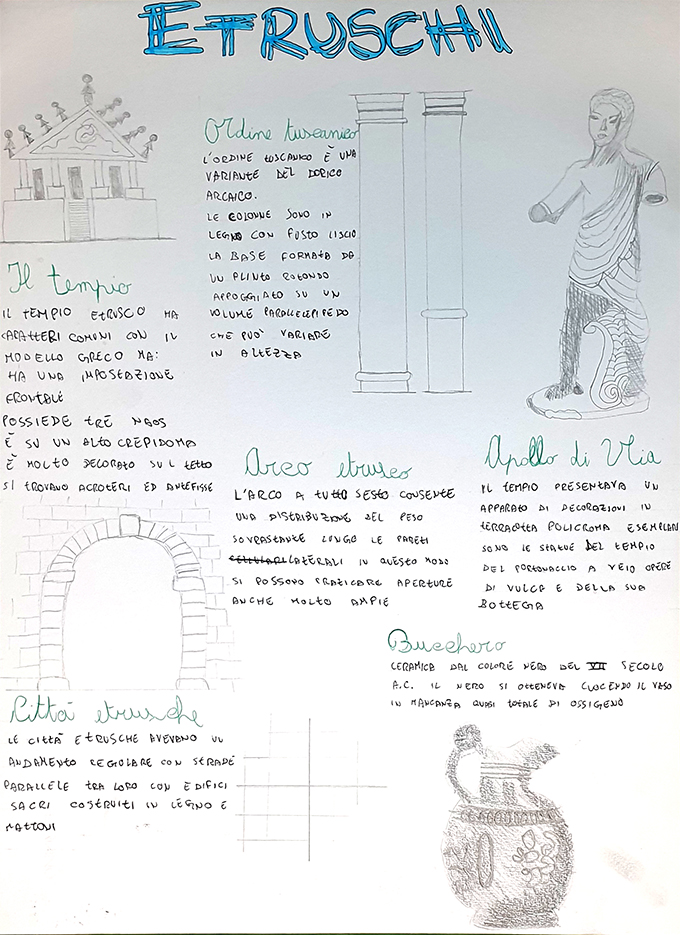 ETRUSCHI
Ordine tuscanico
L'ORDINE TUSCANICO È UNA
VARIANTE DEL DORICO
ARCAICO.
LE COLONNE SONO IN
LEGNO CON FUSTO LISCIO
LA BASE FORMATA DA
UN PLINTO ROTONDO
APPOGGIATO SU UN
VOLUME PARALLELEPIPEDO
CHE PUO' VARIARE
IN ALTEZZA
Il tempio
IL TEMPIO ETRUSCO HA
CARATTERI COMUNI CON IL
MODELLO GRECO MA:
HA UNA IMPOSTAZIONE
FRONTALE
POSSIEDE TRE NAOS
È SU UN ALTO CREPIDOMA
È MOLTO DECORATO SUL TETTO
SI TROVANO ACROTERI ED ANTEFISSE
Arco etrusco
L'ARCO A TUTTO SESTO CONSENTE
UNA DISTRIBUZIONE DEL PESO
SOVRASTANTE LUNGO LE PARETI
LATERALI IN QUESTO MODO
SI POSSONO PRATICARE APERTURE
ANCHE MOLTO AMPIE
Apollo di
IL TEMPIO PRESENTAVA UN
APPARATO DI DECORAZIONI IN
TERRACOTTA POLICROMA ESEMPLARI
SONO LE STATUE DEL TEMPIO
DEL PORTONACCIO A VEIO OPERE
DI VULCA E DELLA SUA
BOTTEGA
Bucchero
CERAMICA DAL COLORE NERO DEL VII SECOLO
A.C. IL NERO SI OTTENEVA CUOCENDO IL VASO
IN MANCANZA QUASI TOTALE DI OSSIGENO
Città etrusche
LE CITTÀ ETRUSCHE AVEVANO UN
ANDAMENTO REGOLARE CON STRADE
PARALLELE TRA LORO CON EDIFICI
SACRI COSTRUITI IN LEGNO E
MATTONI